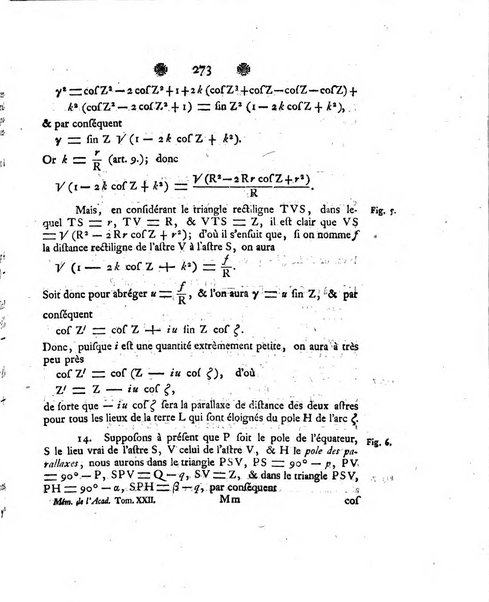 273
γ² = coſ Z² − 2 coſ Z² + 1 + 2 k (coſ Z³ + coſ Z − coſ Z − coſ Z) +
k² (coſ Z² − 2 coſ Z² + 1) = ſin Z² (1 − 2 k coſ Z + k²),
& par conſéquent
γ = ſin Z √ (1 − 2 k coſ Z + k²).
Or k = r/R (art. 9.); donc
√ (1 − 2 k coſ Z + k²) = √(R² − 2 R r coſ Z + r²)/R.
Mais, en conſidérant le triangle rectiligne TVS, dans le-
quel TS = r, TV = R, & VTS = Z, il eſt clair que VS
= √ (R² − 2 R r coſ Z + r²); d'où il s'enſuit que, ſi on nomme ſ
la diſtance rectiligne de l'aſtre V à l'aſtre S, on aura
√ (1 — 2 k coſ Z + k²) = ſ/R.
Soit donc pour abréger u = ſ/R, & l'on aura γ = u ſin Z, & par
conſéquent
coſ Z′ = coſ Z + i u ſin Z coſ ζ.
Donc, puiſque i eſt une quantité extrèmement petite, on aura à très
peu près
coſ Z′ = coſ (Z — i u coſ ζ), d'où
Z′ = Z — i u coſ ζ,
de ſorte que — i u coſ ζ ſera la parallaxe de diſtance des deux aſtres
pour tous les lieux de la terre L qui ſont éloignés du pole H de l'arc ζ.
14. Suppoſons à préſent que P ſoit le pole de l'équateur,
S le lieu vrai de l'aſtre S, V celui de l'aſtre V, & H le pole des pa-
rallaxes, nous aurons dans le triangle PSV, PS = 90° − p, PV
= 90° − P, SPV = Q − q, SV = Z, & dans le triangle PSV,
PH = 90° − α, SPH = β − q, par conſéquent
Mém. de l'Acad. Tom. XXII.
Mm
coſ
Fig. 5.
Fig. 6.